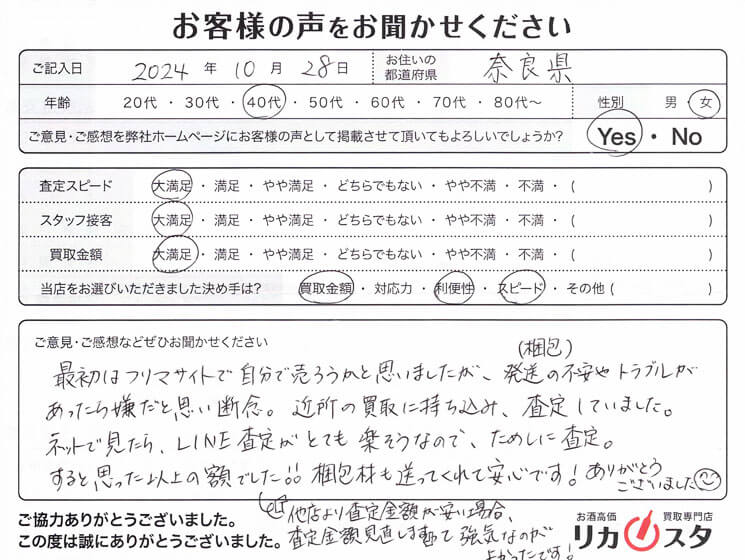 お客様の声をお聞かせください
ご記入日 2024 年 10 月 28 日 お住いの都道府県 奈良県
年齢 20代 ・ 30代 ・ 40代 ・ 50代 ・ 60代 ・ 70代 ・ 80代〜 性別 男 ・ 女
ご意見・ご感想を弊社ホームページにお客様の声として掲載させて頂いてもよろしいでしょうか? Yes ・ No
査定スピード 大満足 ・ 満足 ・ やや満足 ・ どちらでもない ・ やや不満 ・ 不満 ・ ( )
スタッフ接客 大満足 ・ 満足 ・ やや満足 ・ どちらでもない ・ やや不満 ・ 不満 ・ ( )
買取金額 大満足 ・ 満足 ・ やや満足 ・ どちらでもない ・ やや不満 ・ 不満 ・ ( )
当店をお選びいただきました決め手は? 買取金額 ・ 対応力 ・ 利便性 ・ スピード ・ その他 ( )
ご意見・ご感想などぜひお聞かせください
(梱包)
最初はフリマサイトで自分で売ろうかと思いましたが、発送の不安やトラブルが
あったら嫌だと思い断念。近所の買取に持ち込み、査定していました。
ネットで見たら、LINE査定がとても楽そうなので、ためしに査定。
すると思った以上の額でした!! 梱包材も送ってくれて安心です! ありがとう
ございました
他店より査定金額が安い場合、
査定金額見直しますって強気なのが
よかったです!
ご協力ありがとうございました。
この度は誠にありがとうございました。
お酒高価 買取専門店
リカスタ